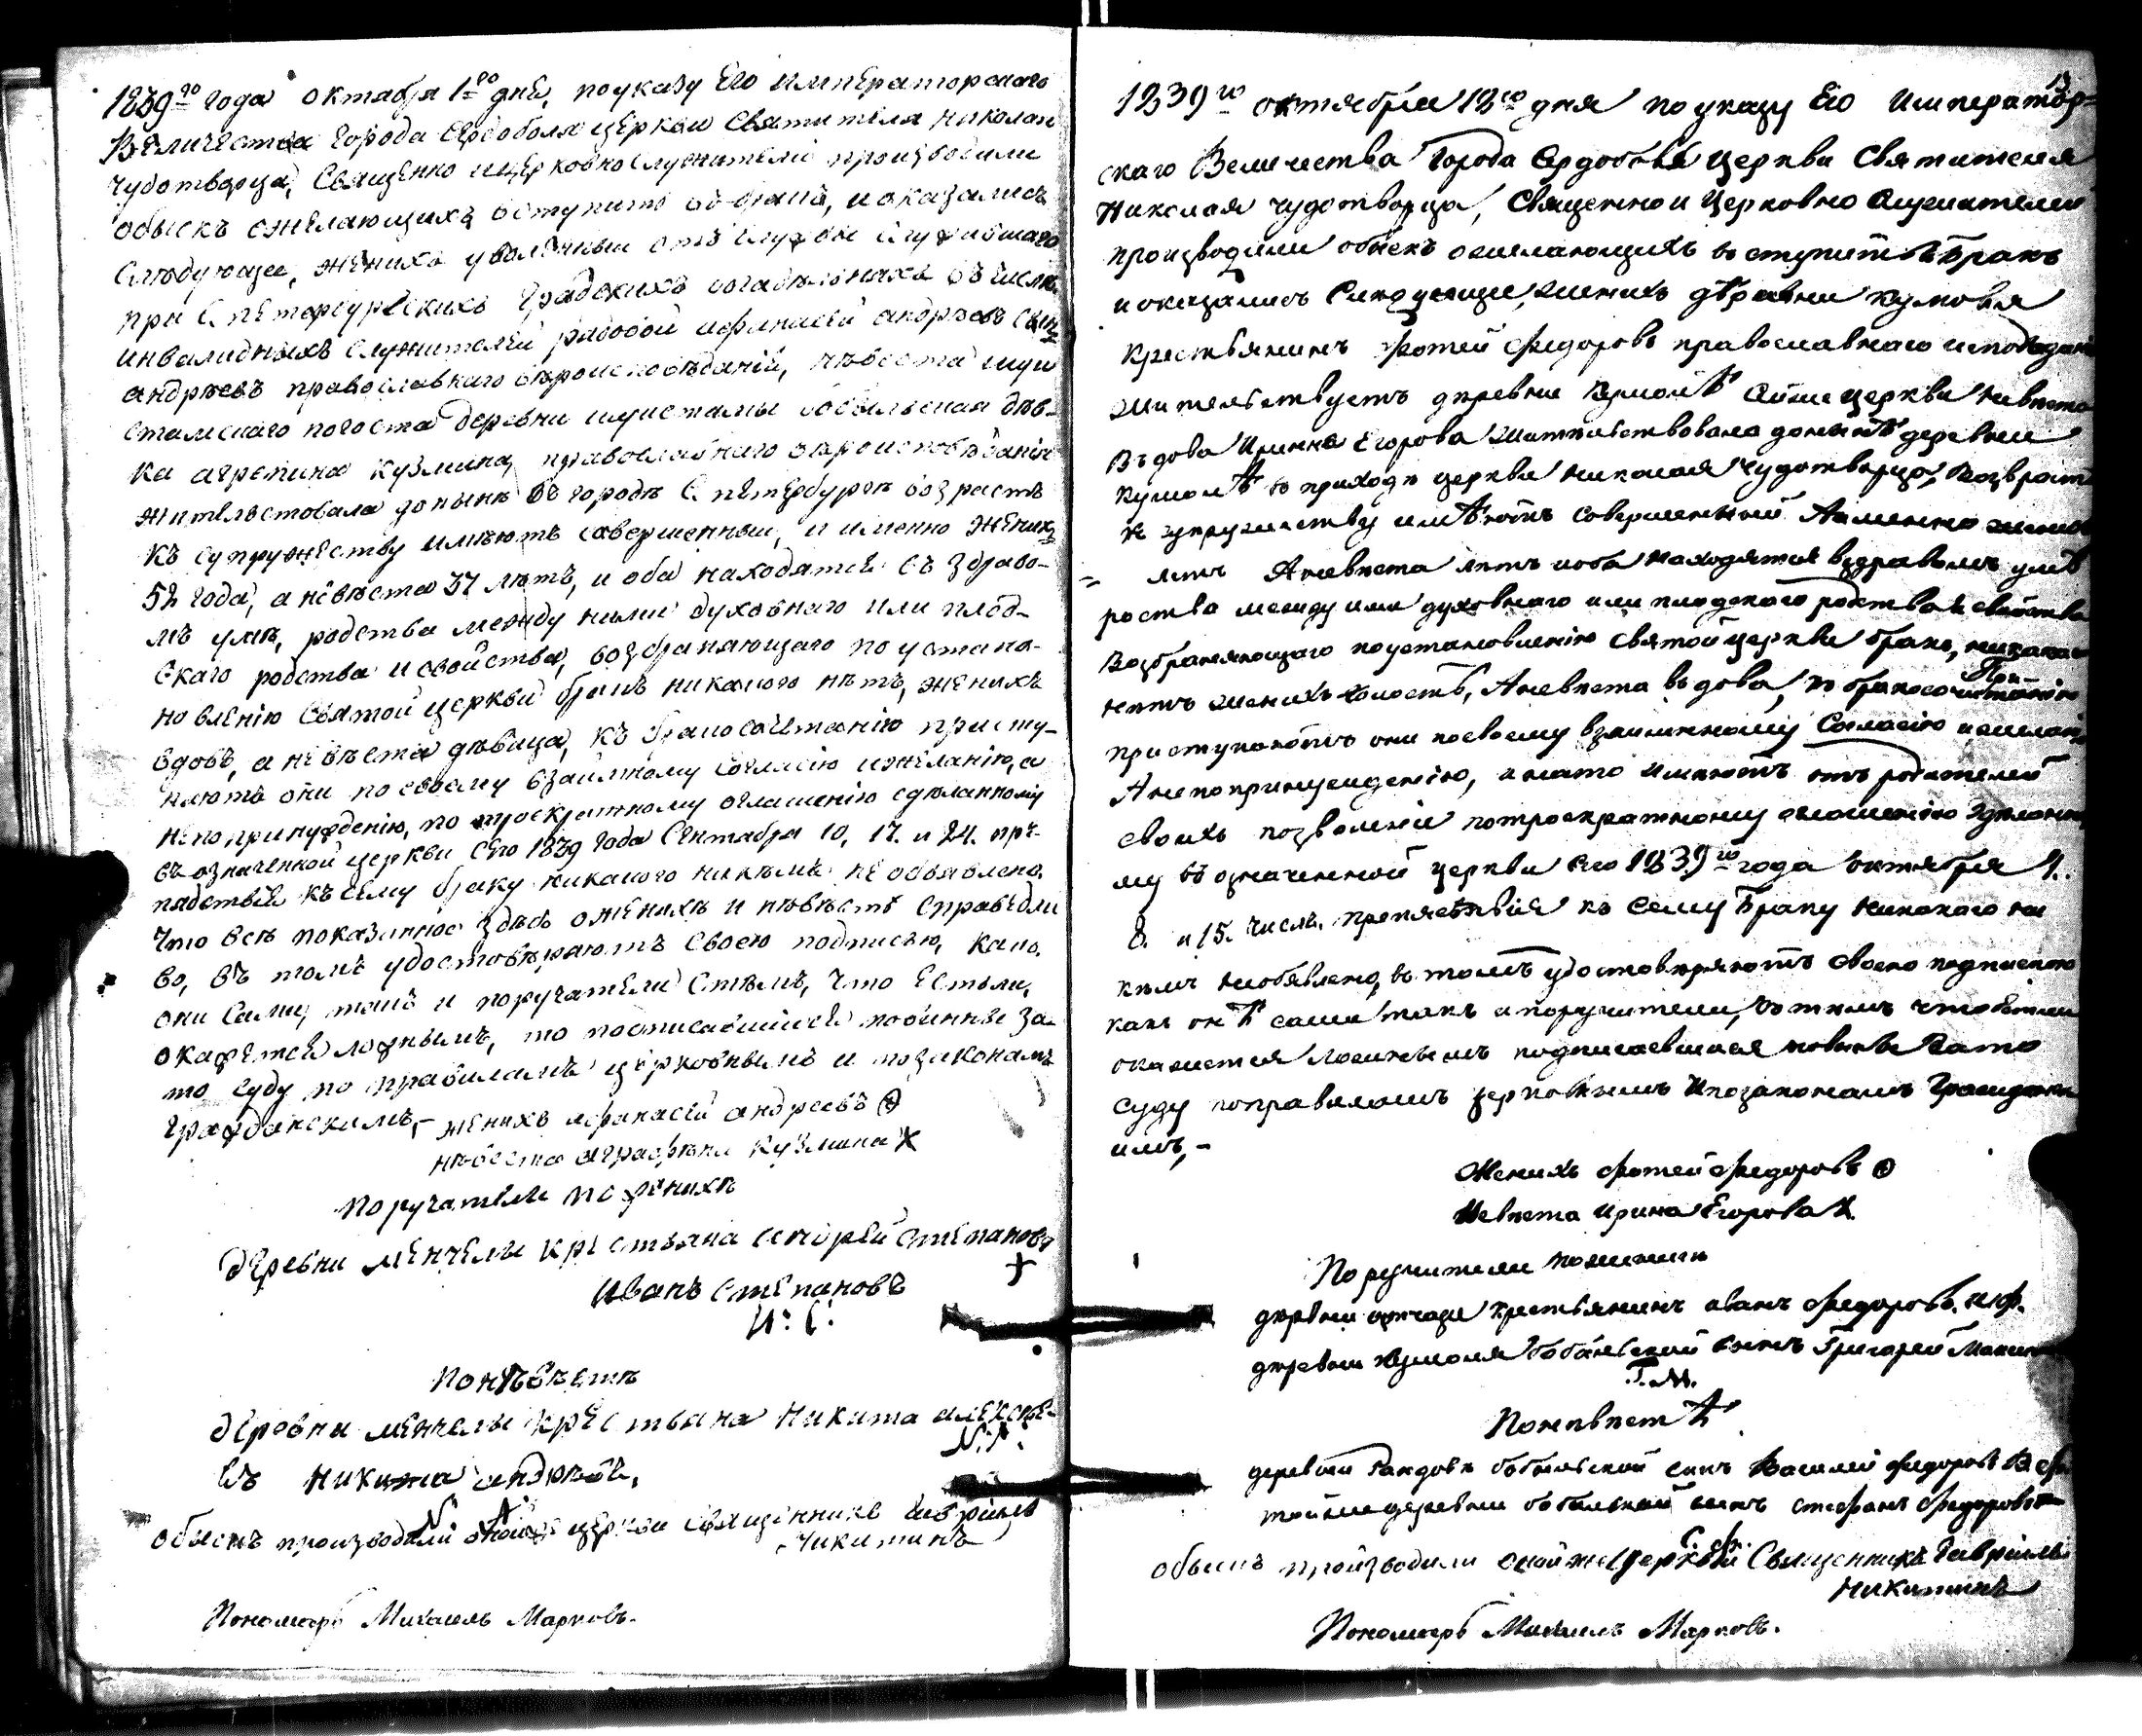 1839го года октября 1го дня, по указу Его Императорскаго
Величества города Сердоболя церкви Святителя Николая
Чудотворца, Священно и церковнослужители производили
обыскъ ожелающихъ вступить въ бракъ, и оказалось
Следующее, женихъ уволенный отъ службы служившаго
при С. петербургскихъ градскихъ богадельняхъ въ числе
инвалидныхъ служителей рядовой Афанасей андреевъ
андреевъ православнаго вероисповеданія, невеста шуи
стамскаго погоста деревни шуистамы бобыльская дѣв-
ка агрепина кузмина, православнаго вероисповеданія
жительстовала донынѣ въ городѣ С петербургѣ возрастъ
къ супружеству имѣютъ совершенный, и именно женихъ
52 года, а невѣста 37 лѣтъ, и оба находятся въ здраво-
мъ умѣ, родства между ними духовнаго или плод-
скаго родства и свойства, возбраняющаго по устано-
новленію Святой церкви бракъ никакого нѣтъ, женихъ
вдовъ, а невѣста дѣвица, къ бракосочетанію присту-
паютъ они по своему взаимному согласію и желанію, а
не по принужденію, по троекратному оглашенію сделанному
въ означенной церкви сего 1839 года Сентября 10, 17. и 24. пре-
пядствія къ сему браку никакого никѣмъ не объявлено.
Что всѣ показанное здѣсь о женихѣ и невѣстѣ справедли
во, въ томъ удостовѣряютъ своею подписью, какъ.
они Сами, такъ и поручатели стѣмъ, что Естьли,
окажется ложнымъ, то подписавшіися повинны за
то суду по правиламъ церковнымъ и по законамъ
Гражданскимъ,-
женихъ афанасей андреевъ
невеста аграфѣна Кузмина Х
Поручатели по женихѣ
деревни менчелы крестьяна Андрей Степановъ
+
Иванъ Степановъ
И: С:
По невѣстѣ
деревни менчелы крестьяна Никита алексѣе-
N. A.
въ Никита андрѣевъ,
N. A.
обыскъ производили оной церкви Священникъ Гавріилъ
Никитинъ
Пономарь Михаилъ Марковъ.
13
1839го октября 18го дня по указу Его Император=
скаго Величества Города Сердоболя церкви Святителя
Николая чудотворца, Священно и Церковно Служители
производили обыскъ ожелающихъ вступить въ бракъ
и оказались Следующие, женихъ дѣревни кумоля
крестьянинъ Фотей Федоровъ православнаго исповедани
жительствуетъ деревне кумолѣ Сей же церкви невеста
Въдова Ирина Егорова жительствовала донынѣ деревни
кумолѣ въ приходе церкви николая чудотворца, возврастъ
к супружеству имѣютъ совершенный А именно жених
= летъ А невеста летъ и оба находятся въ здравомъ умѣ
роства между ими духовнаго или плодскаго родства и свойства
возбраняющаго по установленію Святой церкви бракъ, никакаго
нетъ женихъ холостъ, А невеста въдова, къ бракосочитанію
При-
приступаютъ они по своему взаимнному Согласію и желанію
А не по принуждению, и на то имеютъ отъ родителей
своихъ позволение по троекратному оглашению зделанно
му въ означенной церкви сего 1839го года октября 1.
8. и 15. числъ. препяствия къ сему браку никакого ни
кемъ необявлено, въ томъ удостоверяютъ своею подпискою
какъ онѣ сами такъ и поручители, в темъ что естли
окажется ложнымъ подписавшиеся повинны зато
суду по правиламъ церковнымъ и по законамъ Граждански
имъ,-
Женихъ Фотей Федоровъ
Невеста Ирина Егорова Х
Поручители по женихе
деревни крестьянинъ иванъ Федоровъ. и.ф.
деревни кумоля бобыльской сынъ Григорей
Г. М.
По невестѣ
деревни бобыльской сынъ Василей Федоровъ В Ф
той же деревни бобыльской сынъ стефанъ Федоровъ
С. Ф.
обыскъ произзводили оной же церкви Священникъ Гавріилъ
Никитинъ
Пономарь Михаилъ Марковъ.